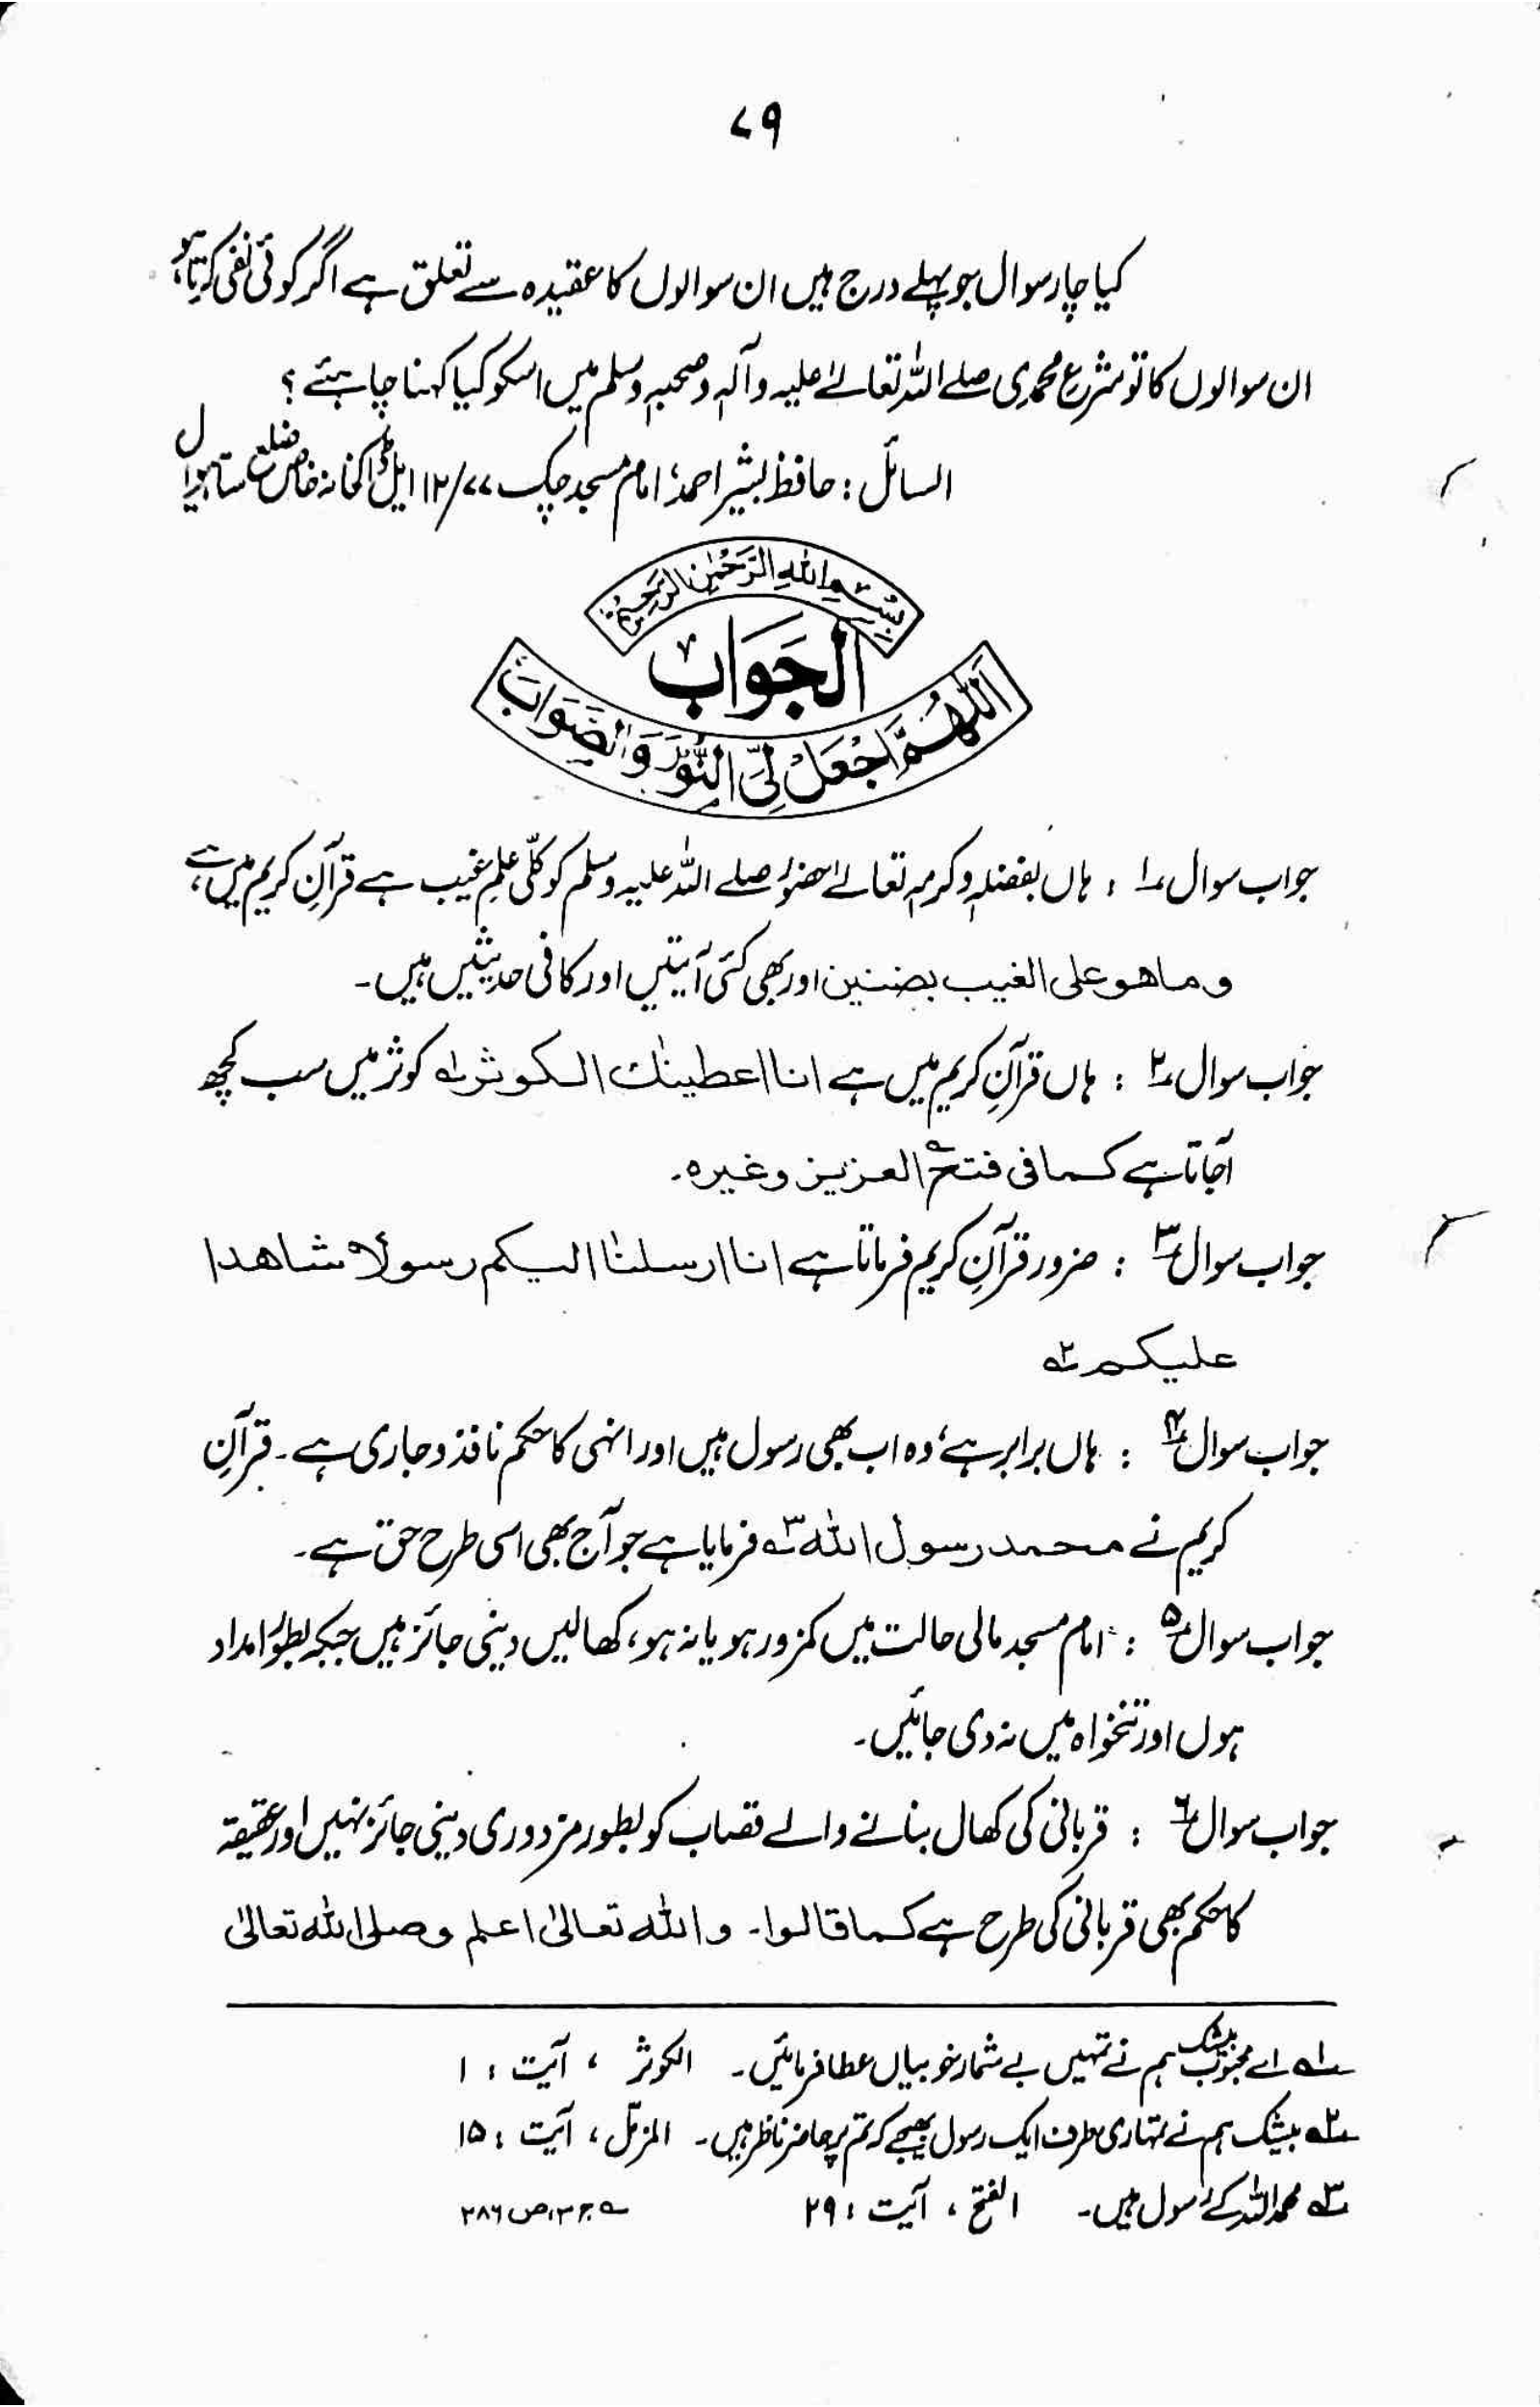 ۷۹
کیا چار سوال جو پہلے درج ہیں ان سوالوں کا عقیدہ سے تعلق ہے اگر کوئی نفی کرتا ہو
ان سوالوں کا تو شرع محمدی صلے اللہ تعالےٰ علیہ وآلہٖ وصحبہٖ وسلم میں اسکو کیا کہنا چاہئے ؟
السائل : حافظ بشیر احمد، امام مسجد چک ۱۲/۷۷ ایل ڈاکخانہ خاص ضلع ساہیوال
بِسْمِ اللهِ الرَّحْمٰنِ الرَّحِيْمِ
الجَوَابُ
اَللّٰهُمَّ اجْعَلْ لِيَ النُّوْرَ وَالصَّوَابَ
جواب سوال ۱ : ہاں بفضلہٖ وکرمہٖ تعالےٰ حضور صلے اللہ علیہ وسلم کو کلّی علمِ غیب ہے قرآنِ کریم میں ہے،
وما هو على الغيب بضنين اور بھی کئی آیتیں اور کافی حدیثیں ہیں۔
جواب سوال ۲ : ہاں قرآنِ کریم میں ہے انا اعطينٰك الكوثر ۱ کوثر میں سب کچھ
آجاتا ہے كما فى فتح العزيز وغيره۔
جواب سوال ۳ : ضرور قرآنِ کریم فرماتا ہے انا ارسلنا اليكم رسولا شاهدا
عليكم ۲
جواب سوال ۴ : ہاں برابر ہے، وہ اب بھی رسول ہیں اور انہی کا حکم نافذ وجاری ہے۔ قرآنِ
کریم نے محمد رسول الله ۳ فرمایا ہے جو آج بھی اسی طرح حق ہے۔
جواب سوال ۵ : امام مسجد مالی حالت میں کمزور ہو یا نہ ہو، کھالیں دینی جائز ہیں جبکہ بطور امداد
ہوں اور تنخواہ میں نہ دی جائیں۔
جواب سوال ۶ : قربانی کی کھال بنانے والے قصاب کو بطور مزدوری دینی جائز نہیں اور عقیقہ
کا حکم بھی قربانی کی طرح ہے كما قالوا۔ والله تعالىٰ اعلم وصلى الله تعالىٰ
۱ اے محبوب بیشک ہم نے تمہیں بے شمار خوبیاں عطا فرمائیں۔ الکوثر ، آیت : ۱
۲ بیشک ہم نے تمہاری طرف ایک رسول بھیجے کہ تم پر حاضر ناظر ہیں۔ المزمّل ، آیت : ۱۵
۳ محمد اللہ کے رسول ہیں۔ الفتح ، آیت : ۲۹ ج ۳، ص ۲۸۶